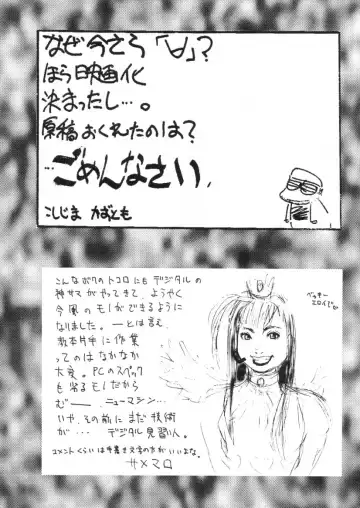 なぜ今さら「∀」?
ほら映画化
決まったし…。
原稿おくれたのは?
ごめんなさい。
こしじま かずとも
こんなボクのトコロにもデジタルの
神サマがやってきて、ようやく
今風のモノができるように
なりました。―とは言え、
教本片手に作業
ってのはなかなか
大変。PCのスペック
も劣るモノだから
むー… ニューマシン…
いや、その前にまだ技術
が… デジタル見習い。
コメントくらいは手書き文字の方がいいよな。
サメマロ